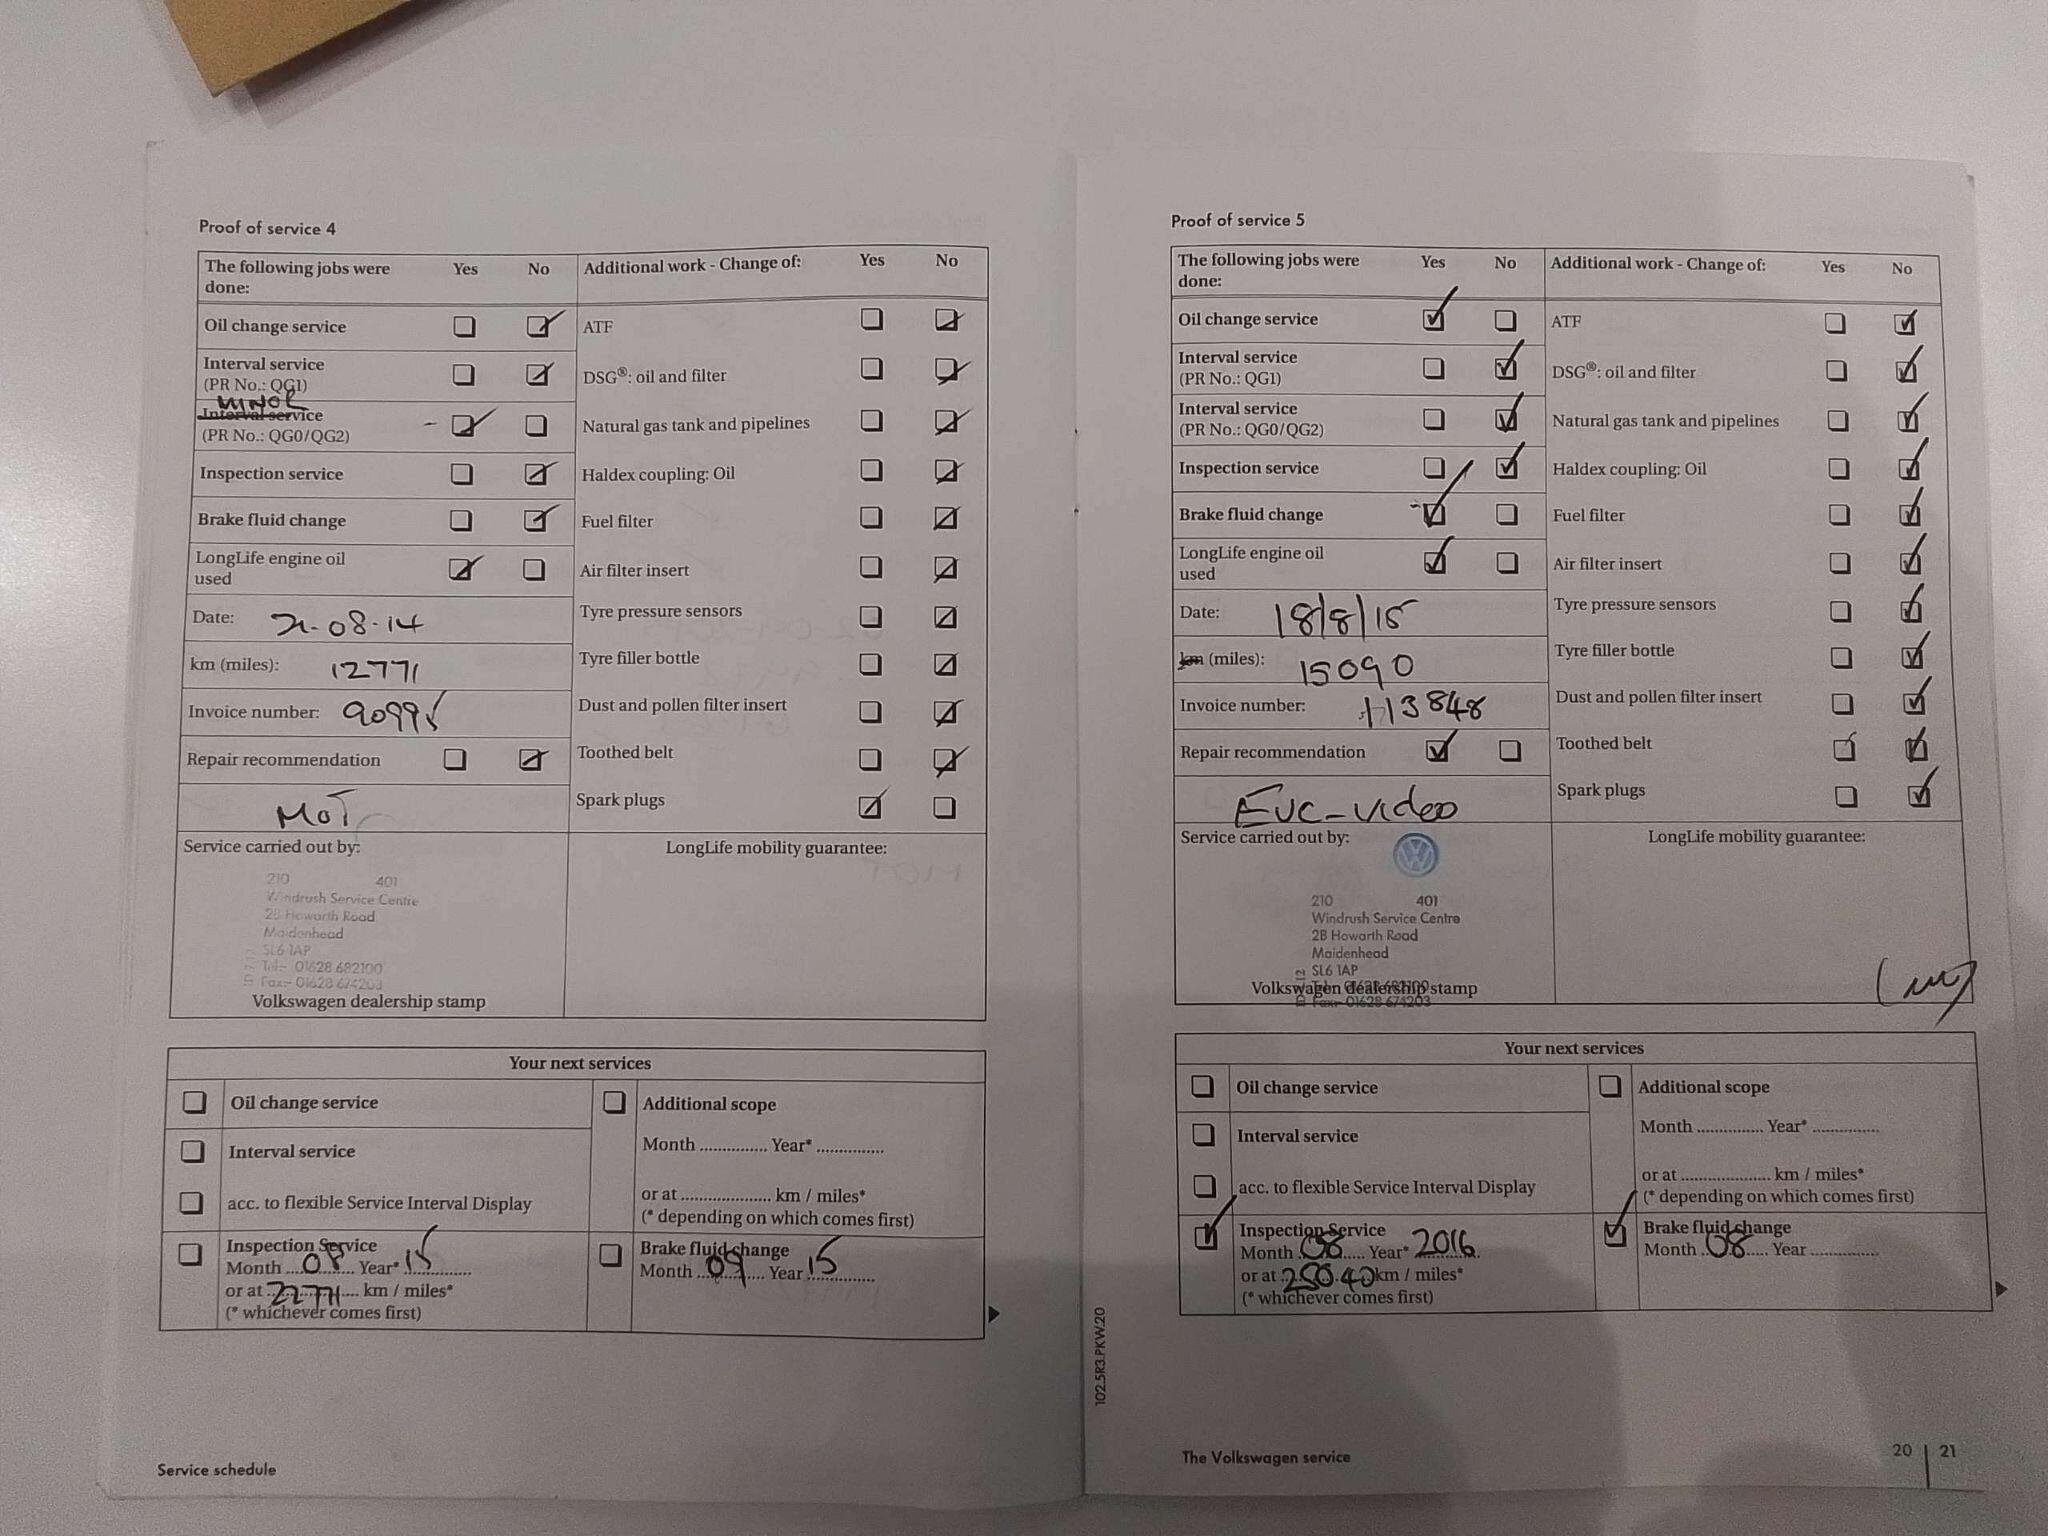 Proof of service 4
The following jobs were done: Yes No
Oil change service
Interval service
(PR No.: QG1)
MINOR
Interval service
(PR No.: QG0/QG2)
Inspection service
Brake fluid change
LongLife engine oil
used
Date: 21-08-14
km (miles): 12771
Invoice number:
Repair recommendation
MOT
Additional work - Change of: Yes No
ATF
DSG®: oil and filter
Natural gas tank and pipelines
Haldex coupling: Oil
Fuel filter
Air filter insert
Tyre pressure sensors
Tyre filler bottle
Dust and pollen filter insert
Toothed belt
Spark plugs
Service carried out by:
210 401
Windrush Service Centre
2B Howarth Road
Maidenhead
SL6 1AP
Tel:- 01628 682100
Fax:- 01628 674203
Volkswagen dealership stamp
LongLife mobility guarantee:
Your next services
Oil change service
Interval service
acc. to flexible Service Interval Display
Inspection Service
Month 08 Year* 15
or at 22771 km / miles*
(* whichever comes first)
Additional scope
Month ............... Year* ...............
or at .................... km / miles*
(* depending on which comes first)
Brake fluid change
Month 09 Year 15
Service schedule
Proof of service 5
The following jobs were done: Yes No
Oil change service
Interval service
(PR No.: QG1)
Interval service
(PR No.: QG0/QG2)
Inspection service
Brake fluid change
LongLife engine oil
used
Date: 18/8/15
km (miles): 15090
Invoice number: 113848
Repair recommendation
EVC-video
Additional work - Change of: Yes No
ATF
DSG®: oil and filter
Natural gas tank and pipelines
Haldex coupling: Oil
Fuel filter
Air filter insert
Tyre pressure sensors
Tyre filler bottle
Dust and pollen filter insert
Toothed belt
Spark plugs
Service carried out by:
210 401
Windrush Service Centre
2B Howarth Road
Maidenhead
SL6 1AP
Tel:- 01628 682100
Fax:- 01628 674203
Volkswagen dealership stamp
LongLife mobility guarantee:
Your next services
Oil change service
Interval service
acc. to flexible Service Interval Display
Inspection Service
Month 08 Year* 2016
or at 25040 km / miles*
(* whichever comes first)
Additional scope
Month ............... Year* ...............
or at .................... km / miles*
(* depending on which comes first)
Brake fluid change
Month 08 Year ...............
102.5R3.PKW.20
The Volkswagen service
20 | 21